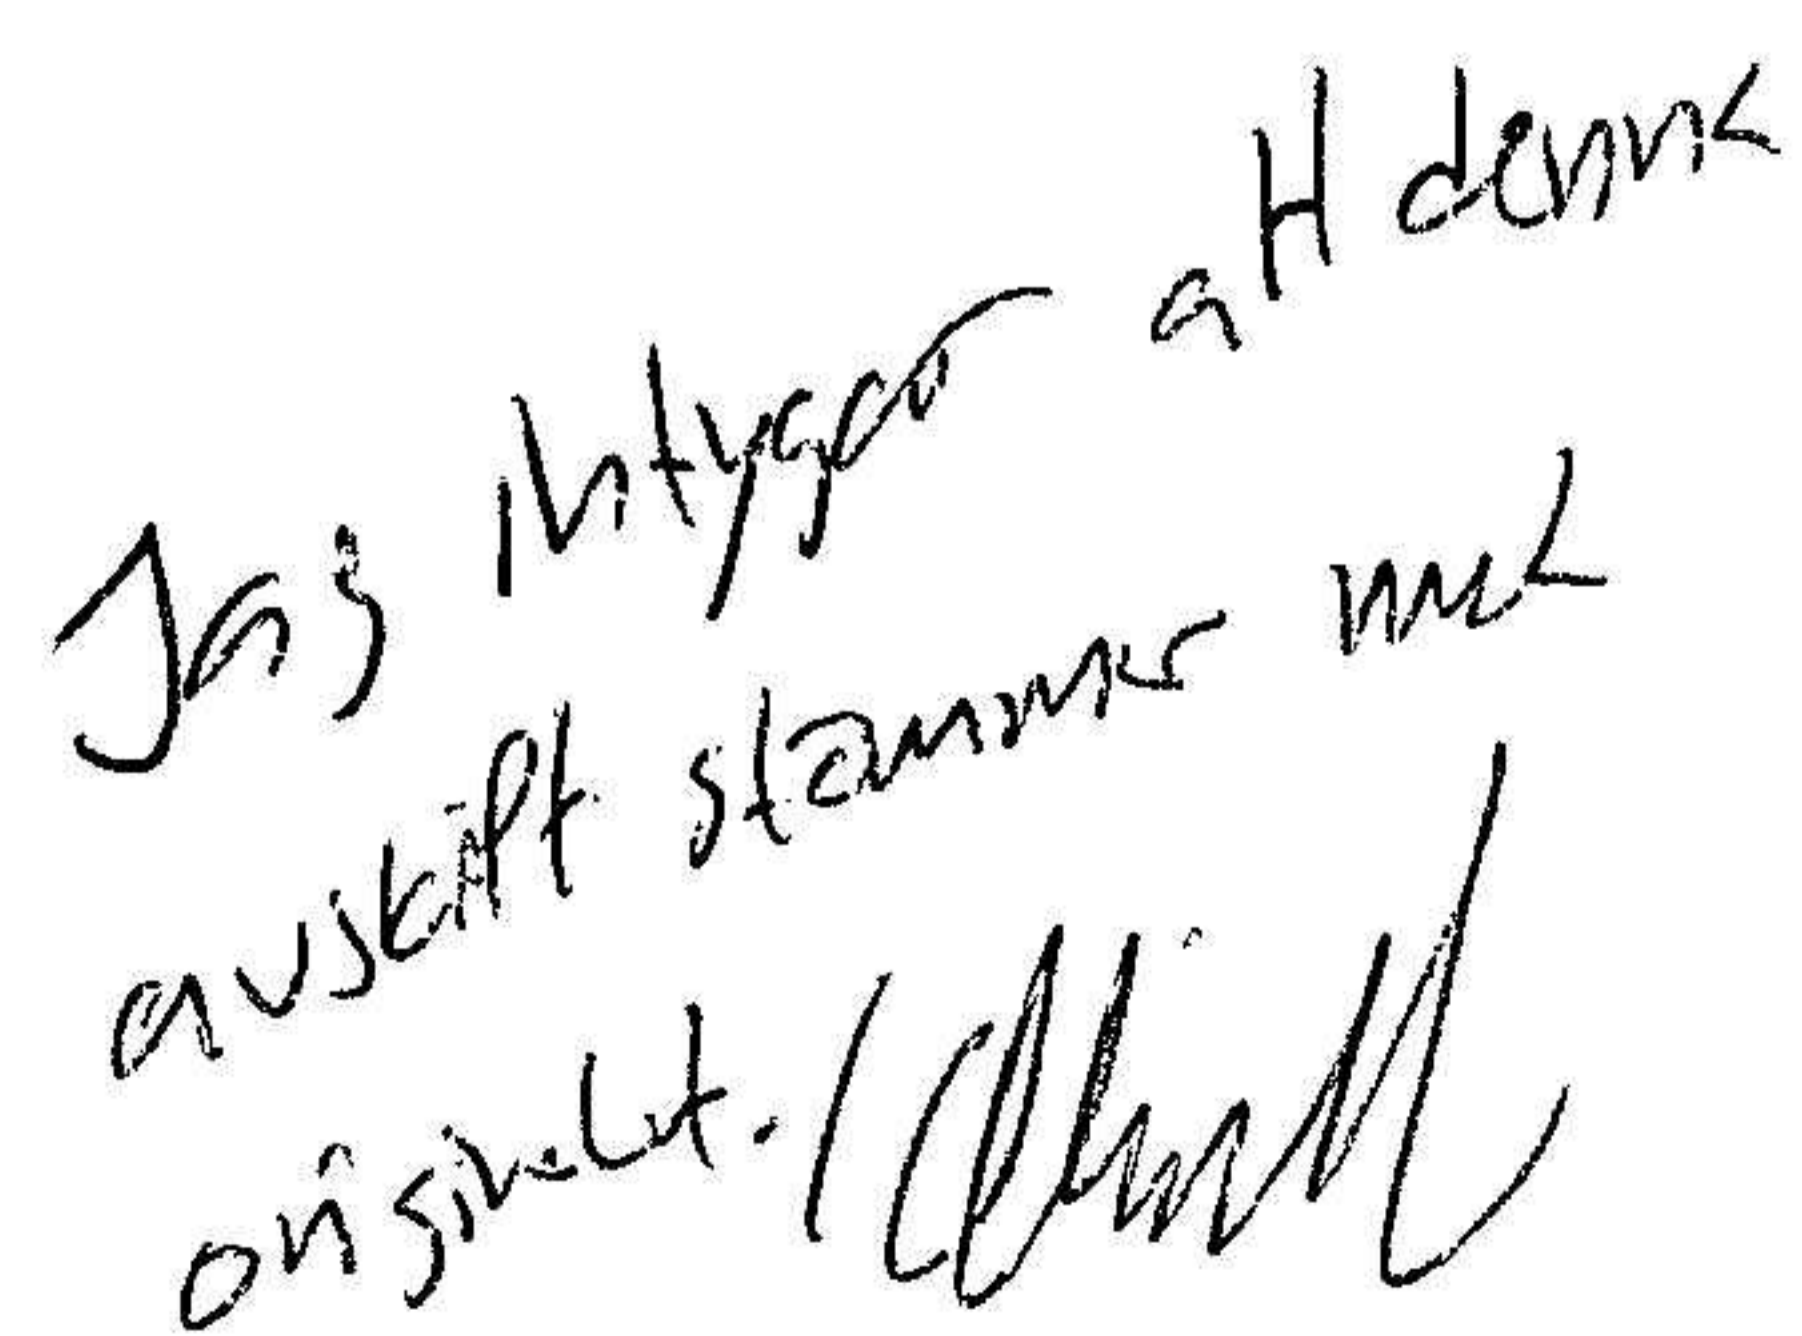 Jag intygar att denna
avskrift stämmer med
originalet.